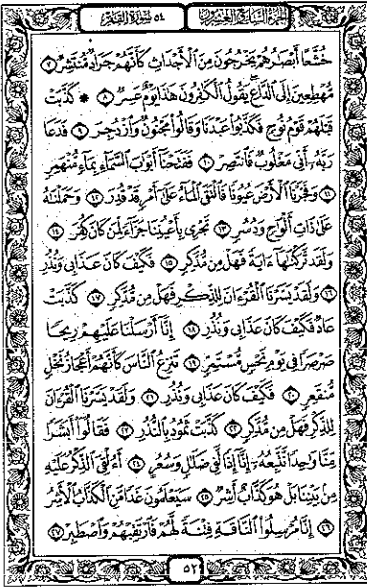 الجزء السابع والعشرون
٥٤ سورة القمر
خُشَّعًا أَبْصَٰرُهُمْ يَخْرُجُونَ مِنَ ٱلْأَجْدَاثِ كَأَنَّهُمْ جَرَادٌ مُّنتَشِرٌ ٧
مُّهْطِعِينَ إِلَى ٱلدَّاعِ يَقُولُ ٱلْكَٰفِرُونَ هَٰذَا يَوْمٌ عَسِرٌ ٨ ۞ كَذَّبَتْ
قَبْلَهُمْ قَوْمُ نُوحٍ فَكَذَّبُوا۟ عَبْدَنَا وَقَالُوا۟ مَجْنُونٌ وَٱزْدُجِرَ ٩ فَدَعَا
رَبَّهُۥٓ أَنِّى مَغْلُوبٌ فَٱنتَصِرْ ١٠ فَفَتَحْنَآ أَبْوَٰبَ ٱلسَّمَآءِ بِمَآءٍ مُّنْهَمِرٍ
١١ وَفَجَّرْنَا ٱلْأَرْضَ عُيُونًا فَٱلْتَقَى ٱلْمَآءُ عَلَىٰٓ أَمْرٍ قَدْ قُدِرَ ١٢ وَحَمَلْنَٰهُ
عَلَىٰ ذَاتِ أَلْوَٰحٍ وَدُسُرٍ ١٣ تَجْرِى بِأَعْيُنِنَا جَزَآءً لِّمَن كَانَ كُفِرَ ١٤
وَلَقَد تَّرَكْنَٰهَآ ءَايَةً فَهَلْ مِن مُّدَّكِرٍ ١٥ فَكَيْفَ كَانَ عَذَابِى وَنُذُرِ
١٦ وَلَقَدْ يَسَّرْنَا ٱلْقُرْءَانَ لِلذِّكْرِ فَهَلْ مِن مُّدَّكِرٍ ١٧ كَذَّبَتْ
عَادٌ فَكَيْفَ كَانَ عَذَابِى وَنُذُرِ ١٨ إِنَّآ أَرْسَلْنَا عَلَيْهِمْ رِيحًا
صَرْصَرًا فِى يَوْمِ نَحْسٍ مُّسْتَمِرٍّ ١٩ تَنزِعُ ٱلنَّاسَ كَأَنَّهُمْ أَعْجَازُ نَخْلٍ
مُّنقَعِرٍ ٢٠ فَكَيْفَ كَانَ عَذَابِى وَنُذُرِ ٢١ وَلَقَدْ يَسَّرْنَا ٱلْقُرْءَانَ
لِلذِّكْرِ فَهَلْ مِن مُّدَّكِرٍ ٢٢ كَذَّبَتْ ثَمُودُ بِٱلنُّذُرِ ٢٣ فَقَالُوٓا۟ أَبَشَرًا
مِّنَّا وَٰحِدًا نَّتَّبِعُهُۥٓ إِنَّآ إِذًا لَّفِى ضَلَٰلٍ وَسُعُرٍ ٢٤ أَءُلْقِىَ ٱلذِّكْرُ عَلَيْهِ
مِنۢ بَيْنِنَا بَلْ هُوَ كَذَّابٌ أَشِرٌ ٢٥ سَيَعْلَمُونَ غَدًا مَّنِ ٱلْكَذَّابُ ٱلْأَشِرُ
٢٦ إِنَّا مُرْسِلُوا۟ ٱلنَّاقَةِ فِتْنَةً لَّهُمْ فَٱرْتَقِبْهُمْ وَٱصْطَبِرْ ٢٧